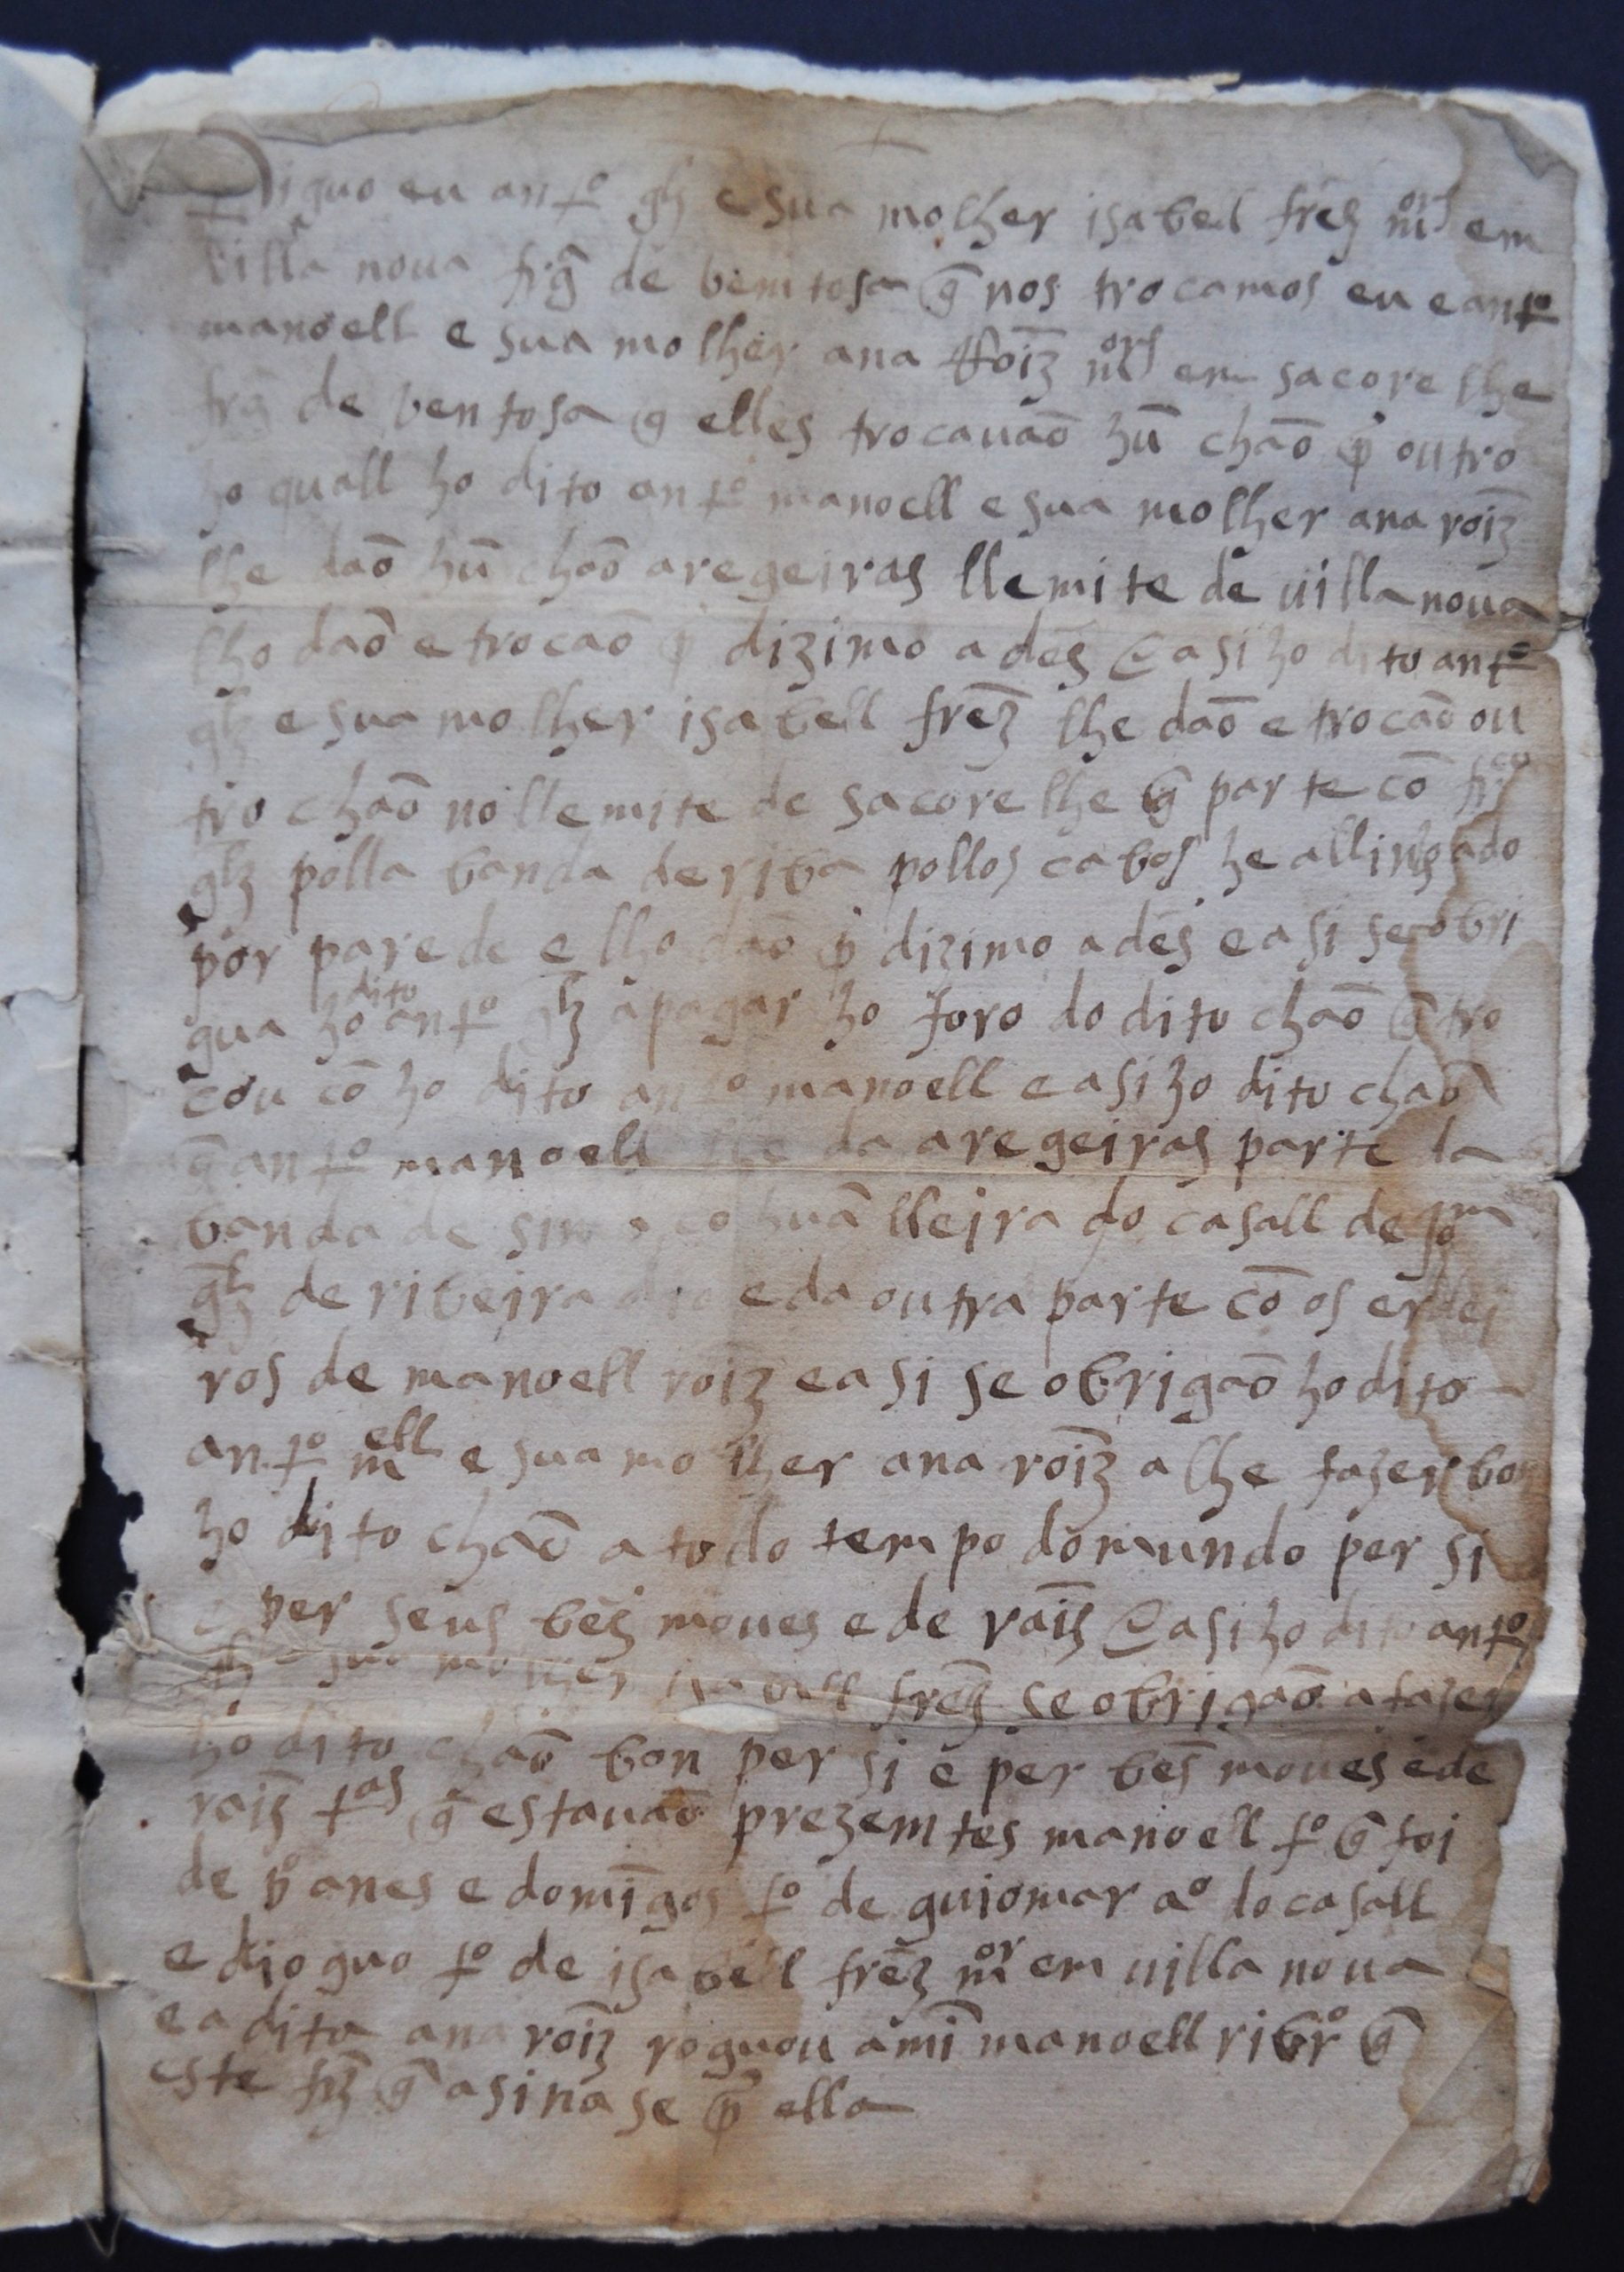 Diguo eu antº glz e sua molher isabell frēz mores em
villa nova frgª de bemtosa q̃ nos trocamos eu e antº
manoell e sua molher ana Roiz mores em sacorelhe
frgª de bentosa q̃ elles trocauaõ hũ chaõ p̃ outro
ho quall ho dito antº manoell e sua molher ana roiz
lhe daõ hũ chaõ aregeiras llemite de uilla noua
lho daõ e trocaõ p̃ dizimo a deş e asi ho dito antº
glz e sua molher isabell frēz lhe daõ e trocaõ ou
tro chaõ no llemite de sacorelhe q̃ parte cõ frco
glz polla banda de riba pollos cabos he allinhado
por parede e lho daõ p̃ dizimo a des e asi se obri
gua ho dito antº glz a pagar ho foro do dito chaõ q̃ tro
cou cõ ho dito antº manoell e asi ho dito chaõ
q̃ antº manoell lhe da aregeiras parte da
banda de sima cõ huã lleira do casall de
glz de ribeira e da outra parte cõ os erdei
ros de manoell roiz e asi se obrigaõ ho dito
antº mell e sua molher ana roiz a lhe fazer bon
ho dito chaõ a todo tempo do mundo per si
e per seus bēs moues e de rais e asi ho dito antº
glz e sua molher isabell frēz se obrigaõ a fazer
ho dito chaõ bon per si e per bēs moues e de
rais tas q̃ estauaõ prezemtes manoell fº q̃ foi
de pº anes e domĩgos fº de guiomar aº do casall
e dioguo fº de isabell frēz mor em uilla noua
e a dita ana roiz roguou a mĩ manoell ribrº q̃
este fiz q̃ asinase p̃ ella